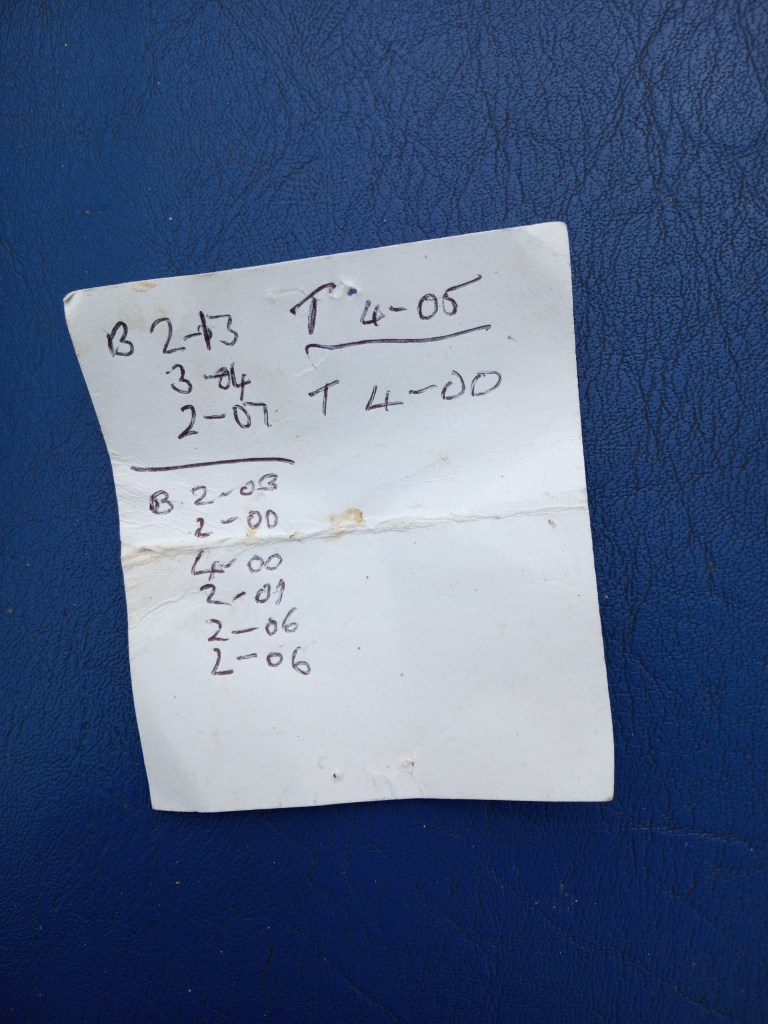 B 2-13 T 4-05
3-04 T 4-00
2-07
B 2-03
2-00
4-00
2-01
2-06
2-06